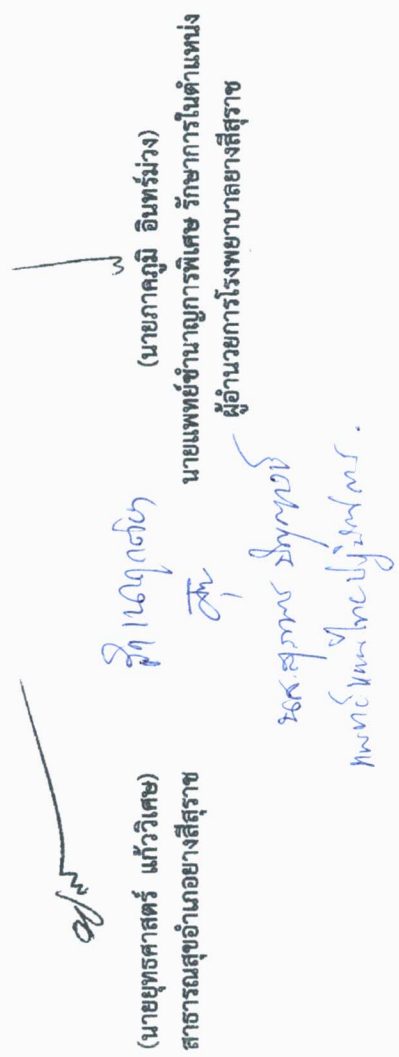 (นายยุทธศาสตร์ แก้ววิเศษ)
สาธารณสุขอำเภอยางสีสุราช
(นายภาคภูมิ อินทร์ม่วง)
นายแพทย์ชำนาญการพิเศษ รักษาการในตำแหน่ง
ผู้อำนวยการโรงพยาบาลยางสีสุราช
น.ส.สุภาพร
แพทย์แผนไทยปฏิบัติการ.